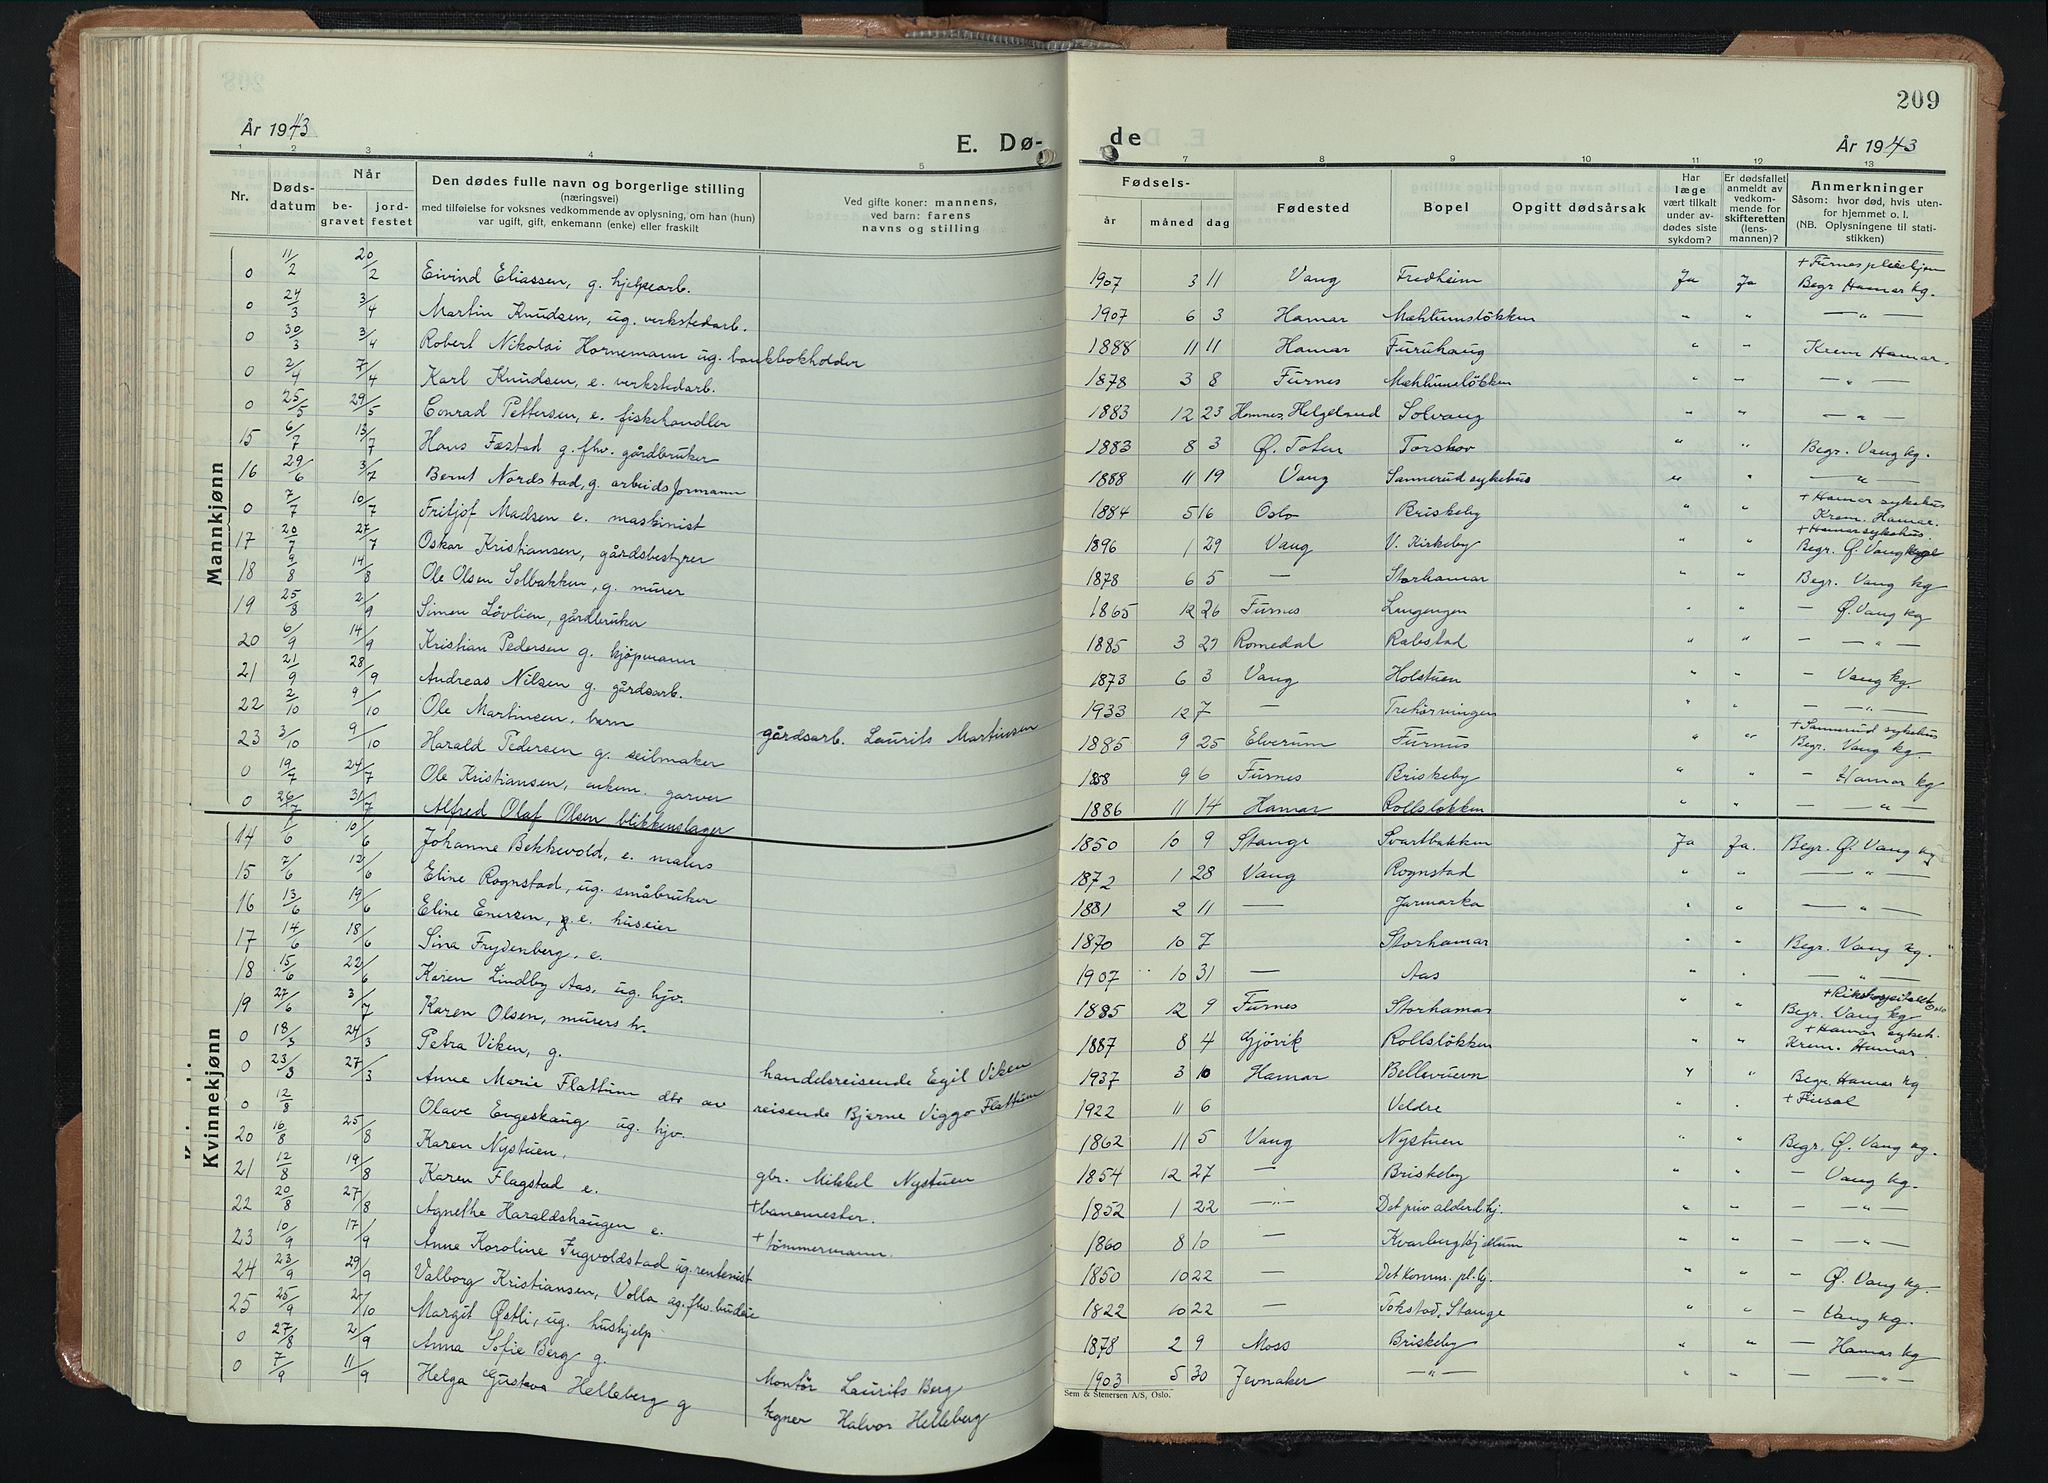 209
År 1943
E. Dø-
de
År 1943
1 2 3 4 5 7 8 9 10 11 12 13
Nr.
Døds-
datum
Når
be-
gravet
jord-
festet
Den dødes fulle navn og borgerlige stilling
(næringsvei)
med tilføielse for voksnes vedkommende av oplysning, om han (hun)
var ugift, gift, enkemann (enke) eller fraskilt
Ved gifte koner: mannens,
ved barn: farens
navns og stilling
Fødsels-
år måned dag
Fødested
Bopel
Opgitt dødsårsak
Har
læge
vært tilkalt
under av-
dødes siste
sykdom?
Er dødsfallet
anmeldt av
vedkom-
mende for
skifteretten
(lens-
mannen)?
Anmerkninger
Såsom: hvor død, hvis uten-
for hjemmet o. l.
(NB. Oplysningene til stati-
stikken)
Mannkjønn
0 11/2 20/2 Eivind Eliassen, g. hjelpearb. 1907 3 11 Vang Fredheim Ja Ja + Furnes pleiehjem Begr Hamar kg.
0 24/3 3/4 Martin Knudsen, ug. verkstedarb. 1907 6 3 Hamar Mæhlumsløkken " " — " —
0 30/3 3/4 Robert Nikolai Hornemann ug. bankbokholder 1888 11 11 Hamar Furuhaug " " Krem Hamar.
0 2/4 7/4 Karl Knudsen, e. verkstedarb. 1878 3 8 Furnes Mæhlumsløkken " " — " —
0 25/5 29/5 Conrad Pettersen, e. fiskehandler 1883 12 23 Hemnes, Helgeland Solvang " " — " —
15 6/7 13/7 Hans Fæstad g. fhv. gårdbruker 1883 8 3 Ø. Toten Torshov " " Begr. Vang kg.
16 29/6 3/7 Bernt Nordstad, g. arbeidsformann 1888 11 19 Vang Sannerud sykehus " " — " —
0 7/7 10/7 Fritjof Madsen e. maskinist 1884 5 16 Oslo Briskeby " " + Hamar sykehus Krem. Hamar.
17 20/7 27/7 Oskar Kristiansen, gårdsbestyrer 1896 1 29 Vang V. Kirkeby " " + Hamar sykehus. Begr. Ø. Vang kg
18 9/8 14/8 Ole Olsen Solbakken, g. murer 1878 6 5 — Storhamar " " Begr. Vang kg
19 25/8 2/9 Simen Løvlien, gårdbruker 1865 12 26 Furnes Lungengen " " — Ø. Vang kg
20 6/9 14/9 Kristian Pedersen g. kjøpmann 1885 3 27 Romedal Rabstad " " — — " —
21 21/9 28/9 Andreas Nilsen g. gårdsarb. 1873 6 3 Vang Holstuen " " — Vang kg.
22 2/10 9/10 Ole Martinsen, barn gårdsarb. Laurits Martinsen 1933 12 7 — Trehørningen " " — — " —
23 3/10 9/10 Harald Pedersen g. seilmaker 1885 9 25 Elverum Furnes " " + Sannerud sykehus Begr. Vang kg.
0 19/7 24/7 Ole Kristiansen, enkem. garver 1858 9 6 Furnes Briskeby " " — Hamar kg
0 26/7 31/7 Alfred Olaf Olsen blikkenslager 1886 11 14 Hamar Rollsløkken " " — — " —
Kvinnekjønn
14 1/6 10/6 Johanne Bekkevold, e. malers 1850 10 9 Stange Svartbakken Ja Ja. Begr. Ø. Vang kg
15 7/6 12/6 Eline Rognstad, ug. småbruker 1872 1 28 Vang Rognstad " " — " —
16 13/6 19/6 Eline Enersen, e. huseier 1881 2 11 — Jarmarka " " — " —
17 14/6 18/6 Sina Frydenberg, e. 1870 10 7 Storhamar " " Begr. Vang kg.
18 15/6 22/6 Karen Lindby Aas, ug. hjv. 1907 10 31 — Aas " " — " —
19 27/6 3/7 Karen Olsen, murers h. 1885 12 9 Furnes Storhamar " " + Rikshospitalet Oslo Begr. Vang kg
0 18/3 24/3 Petra Viken, g. handelsreisende Egil Viken 1887 8 4 Gjøvik Rollsløkken " " + Hamar sykeh. Krem. Hamar.
0 23/3 27/3 Anne Marie Flattum dtr av reisende Bjerne Viggo Flattum 1937 3 10 Hamar Bellevuevn " " Begr. Hamar kg
0 12/8 Olave Engeskaug ug. hjv. 1922 11 6 Veldre " " + Finsal
20 16/8 25/8 Karen Nystuen, gbr. Mikkel Nystuen 1862 11 5 Vang Nystuen " " Begr. Ø. Vang kg.
21 12/8 19/8 Karen Flagstad e. + banemester. 1854 12 27 — Briskeby " " — Vang kg.
22 20/8 27/8 Agnethe Haraldshaugen e. + tømmermann. 1852 1 22 — " — Det priv alderd.hj. " " — " —
23 10/9 17/9 Anne Karoline Ingvoldstad ug. rentenist 1860 8 10 — Kvarberg Hjellum " " — — " —
24 23/9 29/9 Valborg Kristiansen, Volla ug. fhv. budeie 1850 10 22 — Det komm. pl.hj. " " — Ø. Vang kg.
25 25/9 2/10 Margit Østli, ug. hushjelp 1822 10 22 — Tokstad, Stange " " — Vang kg.
0 27/8 2/9 Anna Sofie Berg g. Montør Laurits Berg 1878 2 9 Moss Briskeby " " — Hamar kg
0 7/9 11/9 Helga Gustava Helleberg g Halvor Helleberg 1903 5 30 Jevnaker — " — " " — — " —
Sem & Stenersen A/S, Oslo.